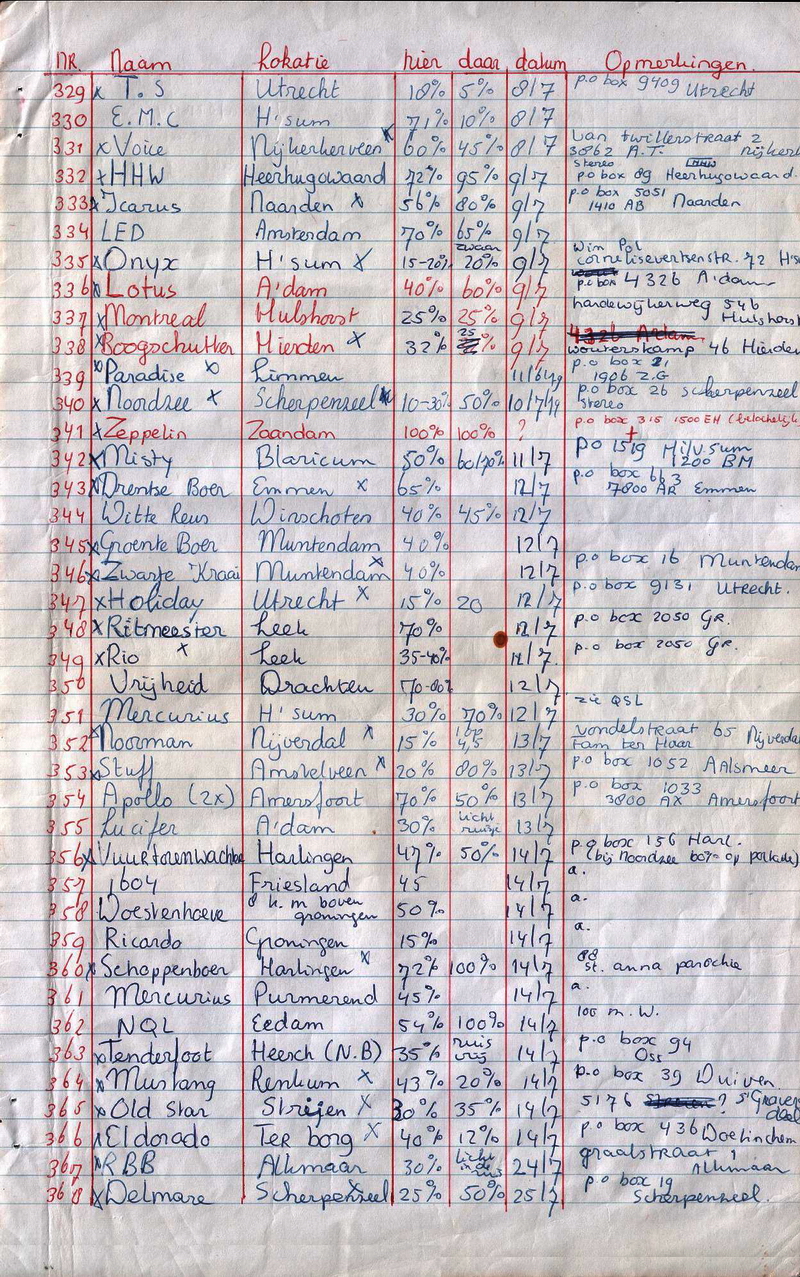 NR. Naam Lokatie hier daar datum Opmerkingen.
329 x T.S Utrecht 18% 5% 8/7 p.o box 9409 Utrecht
330 E.M.C H'sum 71% 10% 8/7
331 x Voice Nijkerkerveen x 60% 45% 8/7 van twillerstraat 2
3862 A.T. Nijkerk
332 x HHW Heerhugowaard 72% 95% 9/7 stereo HHW
p.o box 89 Heerhugowaard.
333 x Icarus Naarden x 56% 80% 9/7 p.o box 5051
1410 AB Naarden
334 LED Amsterdam 70% 65% 9/7
335 x Onyx H'sum x 15-20% zwaar 20% 9/7 Wim Pol
cornelisevertsenstr. 72 H's
336 x Lotus A'dam 40% 60% 9/7 p.o box 4326 A'dam
337 x Montreal Hulshorst 25% 25% 9/7 harderwijkerweg 546
Hulshorst
338 x Boogschutter Hierden x 32% 25 % 9/7 4326 A'dam
wouterskamp 46 Hierden
339 x Paradise x Limmen 11/6/79 p.o box 21
1906 Z.G
340 x Noordzee x Scherpenzeel x 10-30% 50% 10/7/79 p.o box 26 scherpenzeel
stereo
341 x Zeppelin Zaandam 100% 100% ? p.o box 315 1500 EH (belachelijk
+
342 x Misty Blaricum 50% 60/70% 11/7 PO 1519 Hilv.sum
1200 BM
343 x Drentse Boer Emmen x 65% 12/7 p.o box 663
7800 AR Emmen
344 Witte Reus Winschoten 40% 45% 12/7
345 x Groente Boer Muntendam 40% 12/7
346 x Zwarte Kraai Muntendam x 40% 12/7 p.o box 16 Muntendam
347 x Holiday Utrecht x 15% 20 12/7 p.o box 9131 Utrecht.
348 x Ritmeester Leek 70% 12/7 p.o box 2050 GR.
349 x Rio x Leek 35-40% 12/7. p.o box 2050 GR.
350 Vrijheid Drachten 70-80% 12/7
351 Mercurius H'sum 30% 70% 12/7 zie QSL
352 x Noorman Nijverdal x 15% 4,5 13/7 vondelstraat 65 Nijverdal
Fam ter Haar
353 x Stuff Amstelveen x 20% 80% 13/7 p.o box 1052 Aalsmeer
354 Apollo (2x) Amersfoort 70% 50% 13/7 p.o box 1033
3800 AX Amersfoort
355 Lucifer A'dam 30% licht ruisje 13/7
356 x Vuurtorenwachter Harlingen 47% 50% 14/7 p.o box 156 Harl.
(bij Noordzee 60% op portable)
357 1604 Friesland 45 14/7 a.
358 Woestenhoeve 8 k.m boven
groningen 50% 14/7 a.
359 Ricardo Groningen 15% 14/7 a.
360 x Schoppenboer Harlingen x 72% 100% 14/7 88
st. anna parochie
361 Mercurius Purmerend 45% 14/7 a.
362 NQL Eedam 54% 100% 14/7 100 m.W.
363 x Tenderfoot Heesch (N.B) 35% ruis vrij 14/7 p.o box 94
Oss
364 x Mustang Renkum x 43% 20% 14/7 p.o box 39 Duiven
365 x Old Star Strijen x 30% 35% 14/7 5176 ? s'Graven
deel
366 x Eldorado Ter borg x 40% 12% 14/7 p.o box 436 Doetinchem
367 x RBB Alkmaar 30% licht in de ruis 24/7 graafstraat 1
Alkmaar
368 x Delmare Scherpenzeel 25% 50% 25/7 p.o box 19
Scherpenzeel.